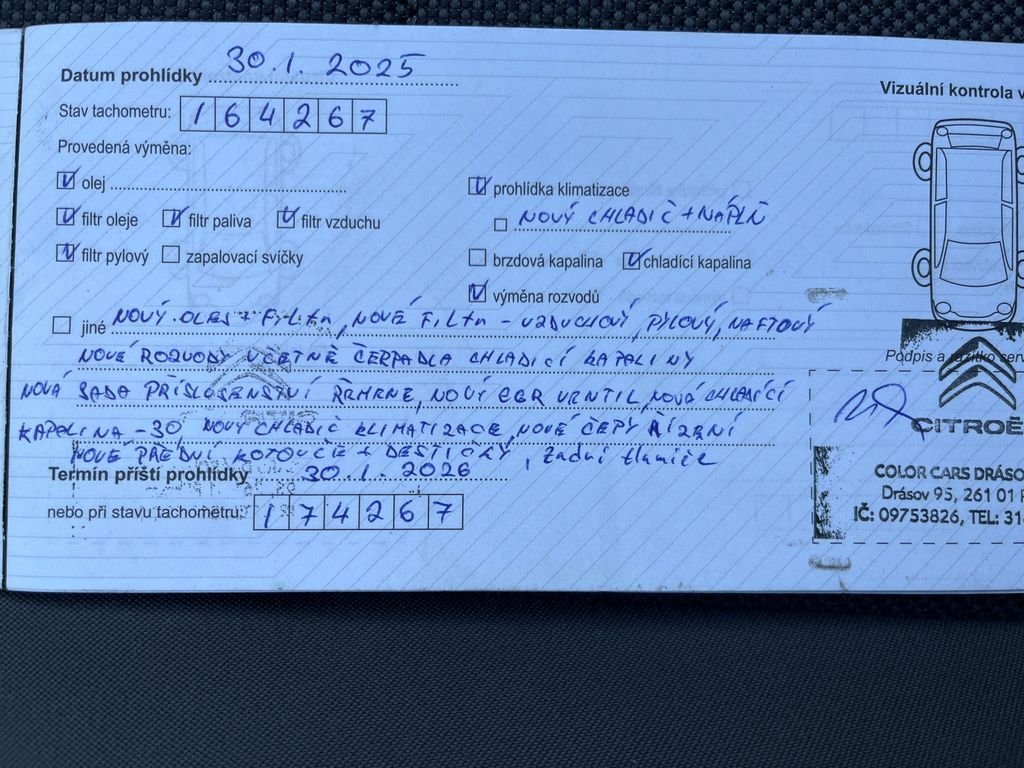 Datum prohlídky 30.1.2025
Vizuální kontrola v
Stav tachometru: 164267
Provedená výměna:
olej
prohlídka klimatizace
filtr oleje filtr paliva filtr vzduchu
NOVÝ CHLADIČ + NÁPLŇ
filtr pylový zapalovací svíčky
brzdová kapalina chladící kapalina
výměna rozvodů
jiné NOVÝ OLEJ + FILTR, NOVÉ FILTR - VZDUCHOVÝ, PYLOVÝ, NAFTOVÝ
NOVÉ ROZVODY VČETNĚ ČERPADLA CHLADICÍ KAPALINY
NOVÁ SADA PŘÍSLUŠENSTVÍ ŘEMENE, NOVÝ EGR VENTIL, NOVÁ CHLADÍCÍ
KAPALINA -30, NOVÝ CHLADIČ KLIMATIZACE, NOVÉ ČEPY ŘÍZENÍ
NOVÉ PŘEDNÍ KOTOUČE + DESTIČKY, Zadní tlumiče
Termín příští prohlídky 30.1.2026
nebo při stavu tachometru: 174267
Podpis a razítko serv
CITROË
COLOR CARS DRÁSO
Drásov 95, 261 01 P
IČ: 09753826, TEL: 31